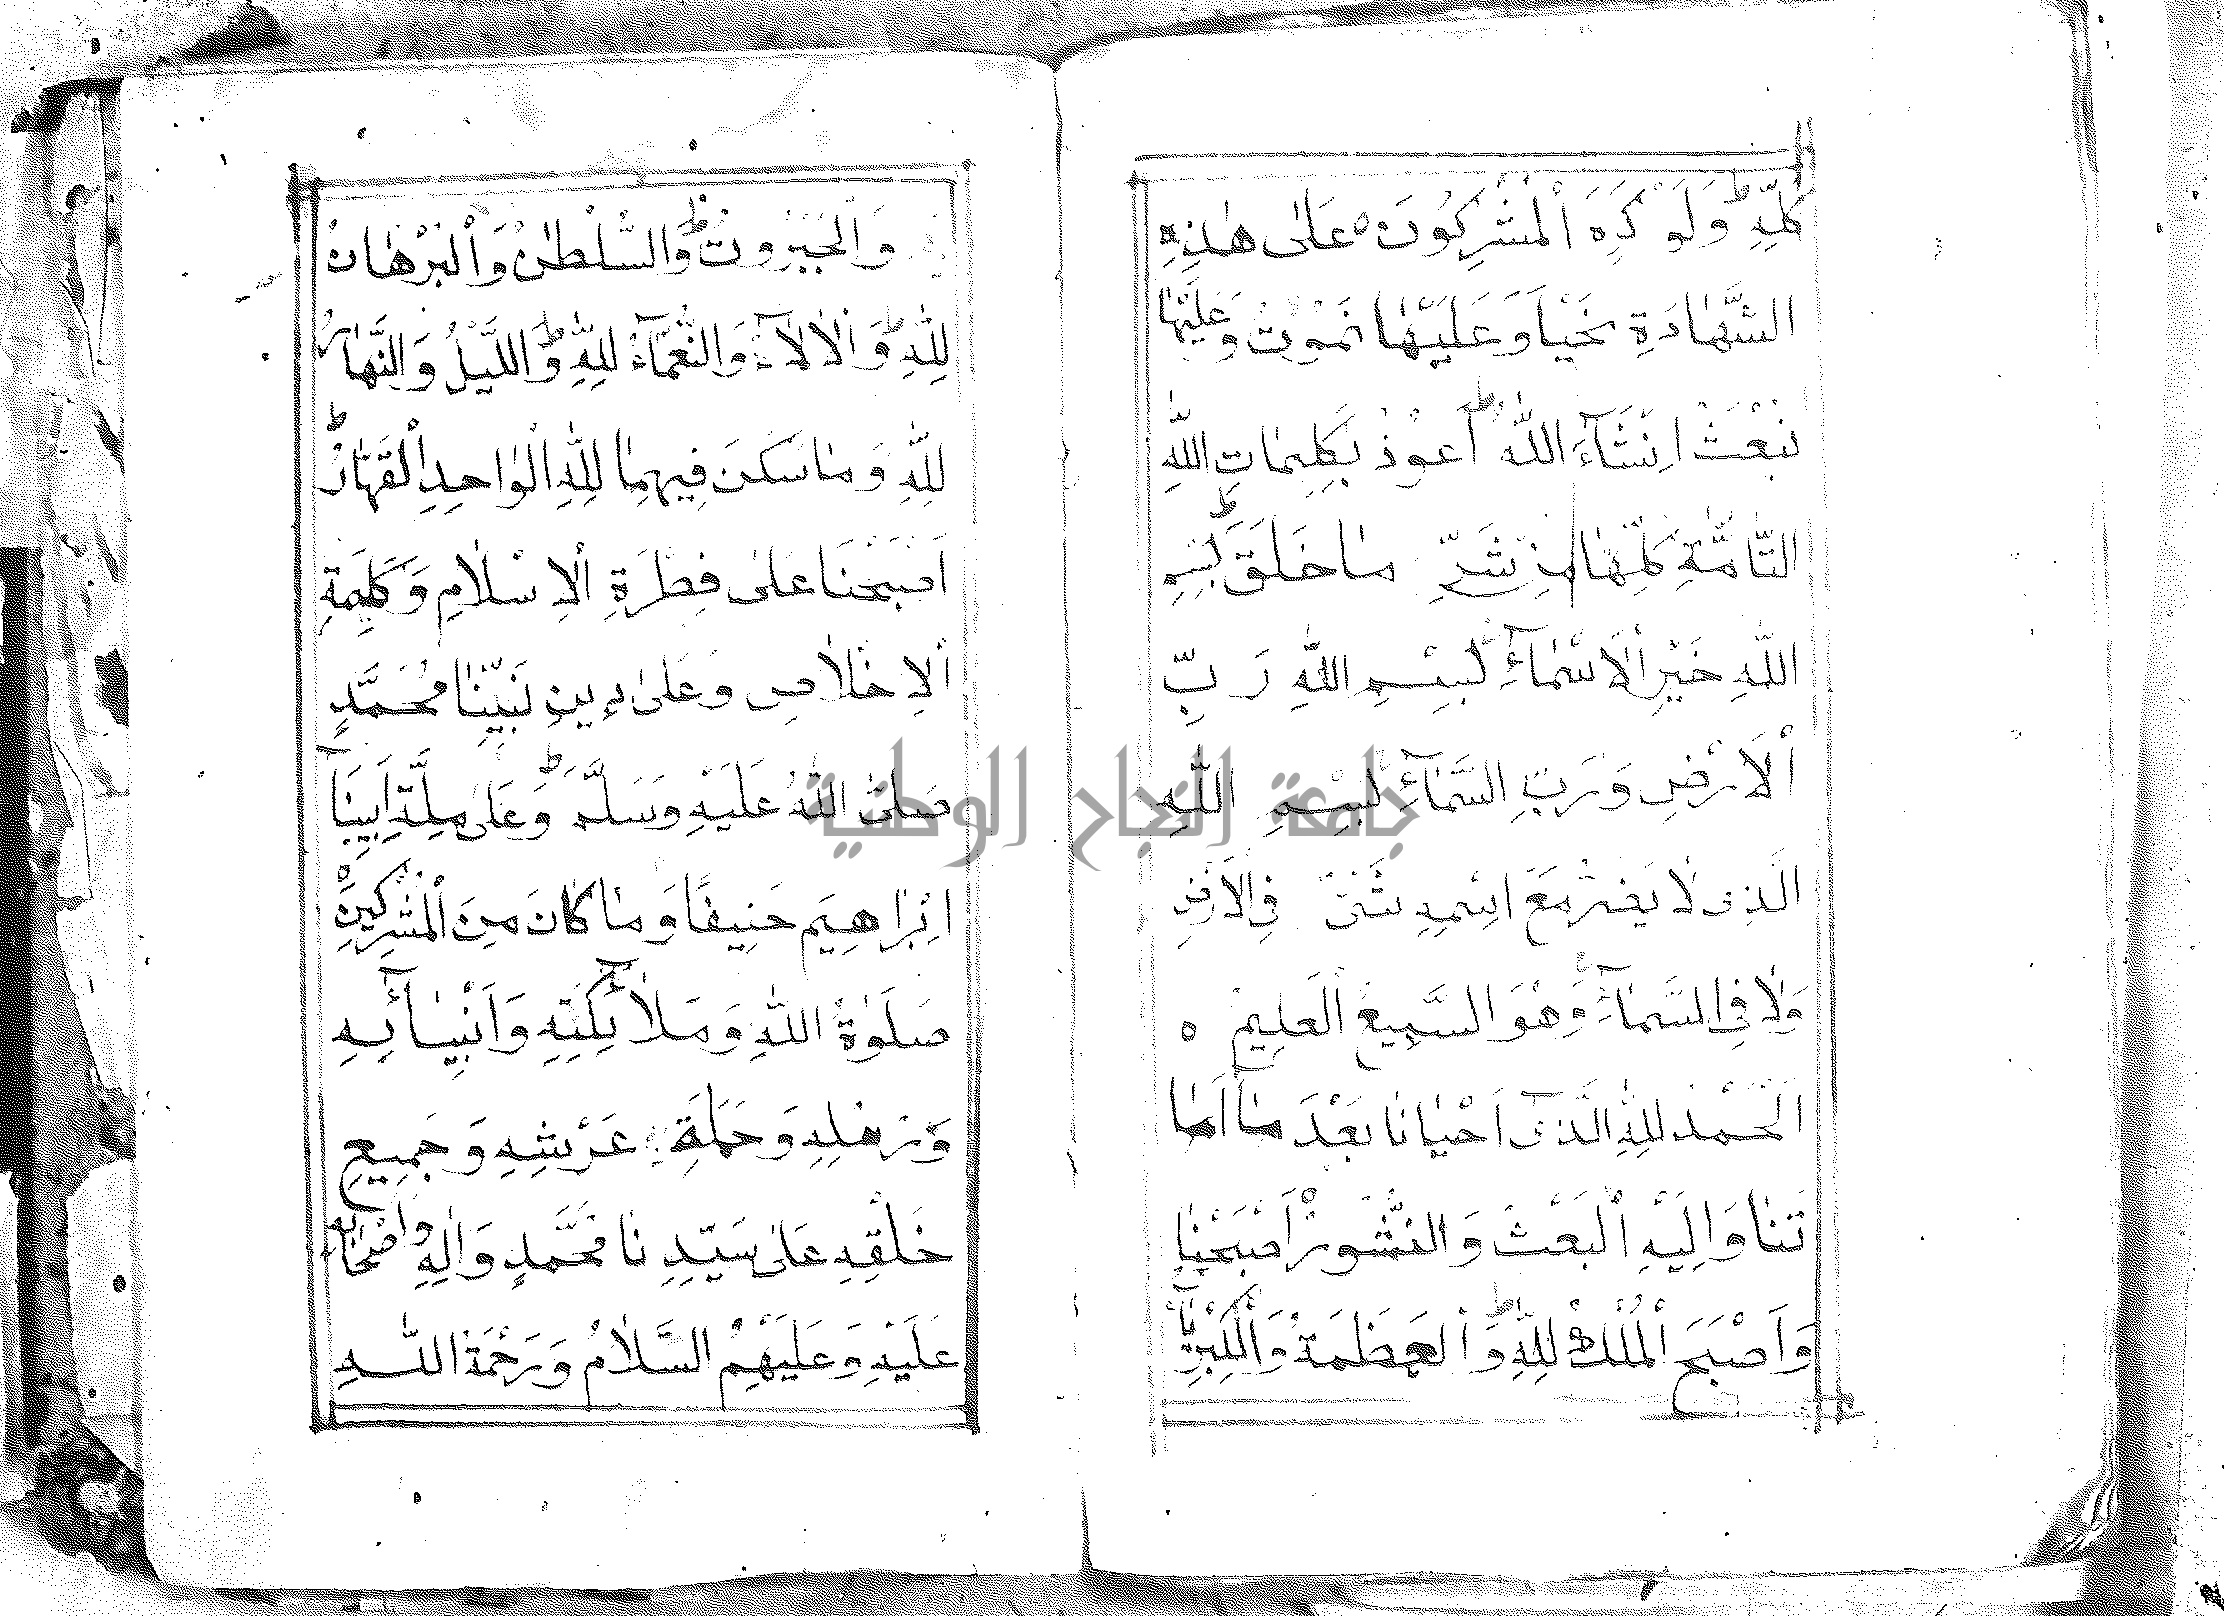 كُلِّهِ وَلَوْ كَرِهَ اَلْمُشْرِكُونَ عَلٰى هٰذِهِ
الشَّهَادَةِ نَحْيَا وَعَلَيْهَا نَمُوْتُ وَعَلَيْهَا
نُبْعَثُ اِنْشَآءَ اللّٰهُ اَعُوْذُ بِكَلِمَاتِ اللّٰهِ
التَّامَّةِ كُلِّهَا مِنْ شَرِّ مَا خَلَقَ بِسْمِ
اللّٰهِ خَيْرِ اْلاَسْمَآءِ بِسْمِ اللّٰهِ رَبِّ
اْلاَرْضِ وَرَبِّ السَّمَآءِ بِسْمِ اللّٰهِ
الَّذِى لَا يَضُرُّ مَعَ اسْمِهِ شَىْءٌ فِى الْاَرْضِ
وَلَا فِى السَّمَآءِ وَهُوَ السَّمِيعُ الْعَلِيمُ ه
اَلْحَمْدُ لِلّٰهِ الَّذِىٓ اَحْيَانَا بَعْدَ مَآ اَمَا
تَنَا وَاِلَيْهِ اْلبَعْثُ وَالنُّشُورُ اَصْبَحْنَا
وَاَصْبَحَ اْلمُلْكُ لِلّٰهِ وَاْلعَظَمَةُ وَاْلكِبْرِيَآ
وَالْجَبَرُوتُ وَالسُّلْطٰنُ وَاْلبُرْهَانُ
لِلّٰهِ وَاْلاٰلاَءُ وَالنَّعْمَآءُ لِلّٰهِ وَاللَّيْلُ وَالنَّهَارُ
لِلّٰهِ وَمَا سَكَنَ فِيهِمَا لِلّٰهِ الْوَاحِدِ اْلقَهَّارْ
اَصْبَحْنَا عَلٰى فِطْرَةِ اْلاِسْلَامِ وَكَلِمَةِ
اْلاِخْلَاصِ وَعَلٰى دِينِ نَبِيِّنَا مُحَمَّدٍ
صَلَّى اللّٰهُ عَلَيْهِ وَسَلَّمَ وَعَلٰى مِلَّةِ اَبِينَآ
اِبْرَاهِيمَ حَنِيفًا وَمَا كَانَ مِنَ اْلمُشْرِكِينَ
صَلَوٰةُ اللّٰهِ وَمَلَآئِكَتِهِ وَاَنْبِيَآئِهِ
وَرُسُلِهِ وَحَمَلَةِ عَرْشِهِ وَجَمِيعِ
خَلْقِهِ عَلٰى سَيِّدِنَا مُحَمَّدٍ وَاٰلِهِ وَاَصْحَابِهِ
عَلَيْهِ وَعَلَيْهِمُ السَّلَامُ وَرَحْمَةُ اللّٰهِ
جامعة النجاح الوطنية